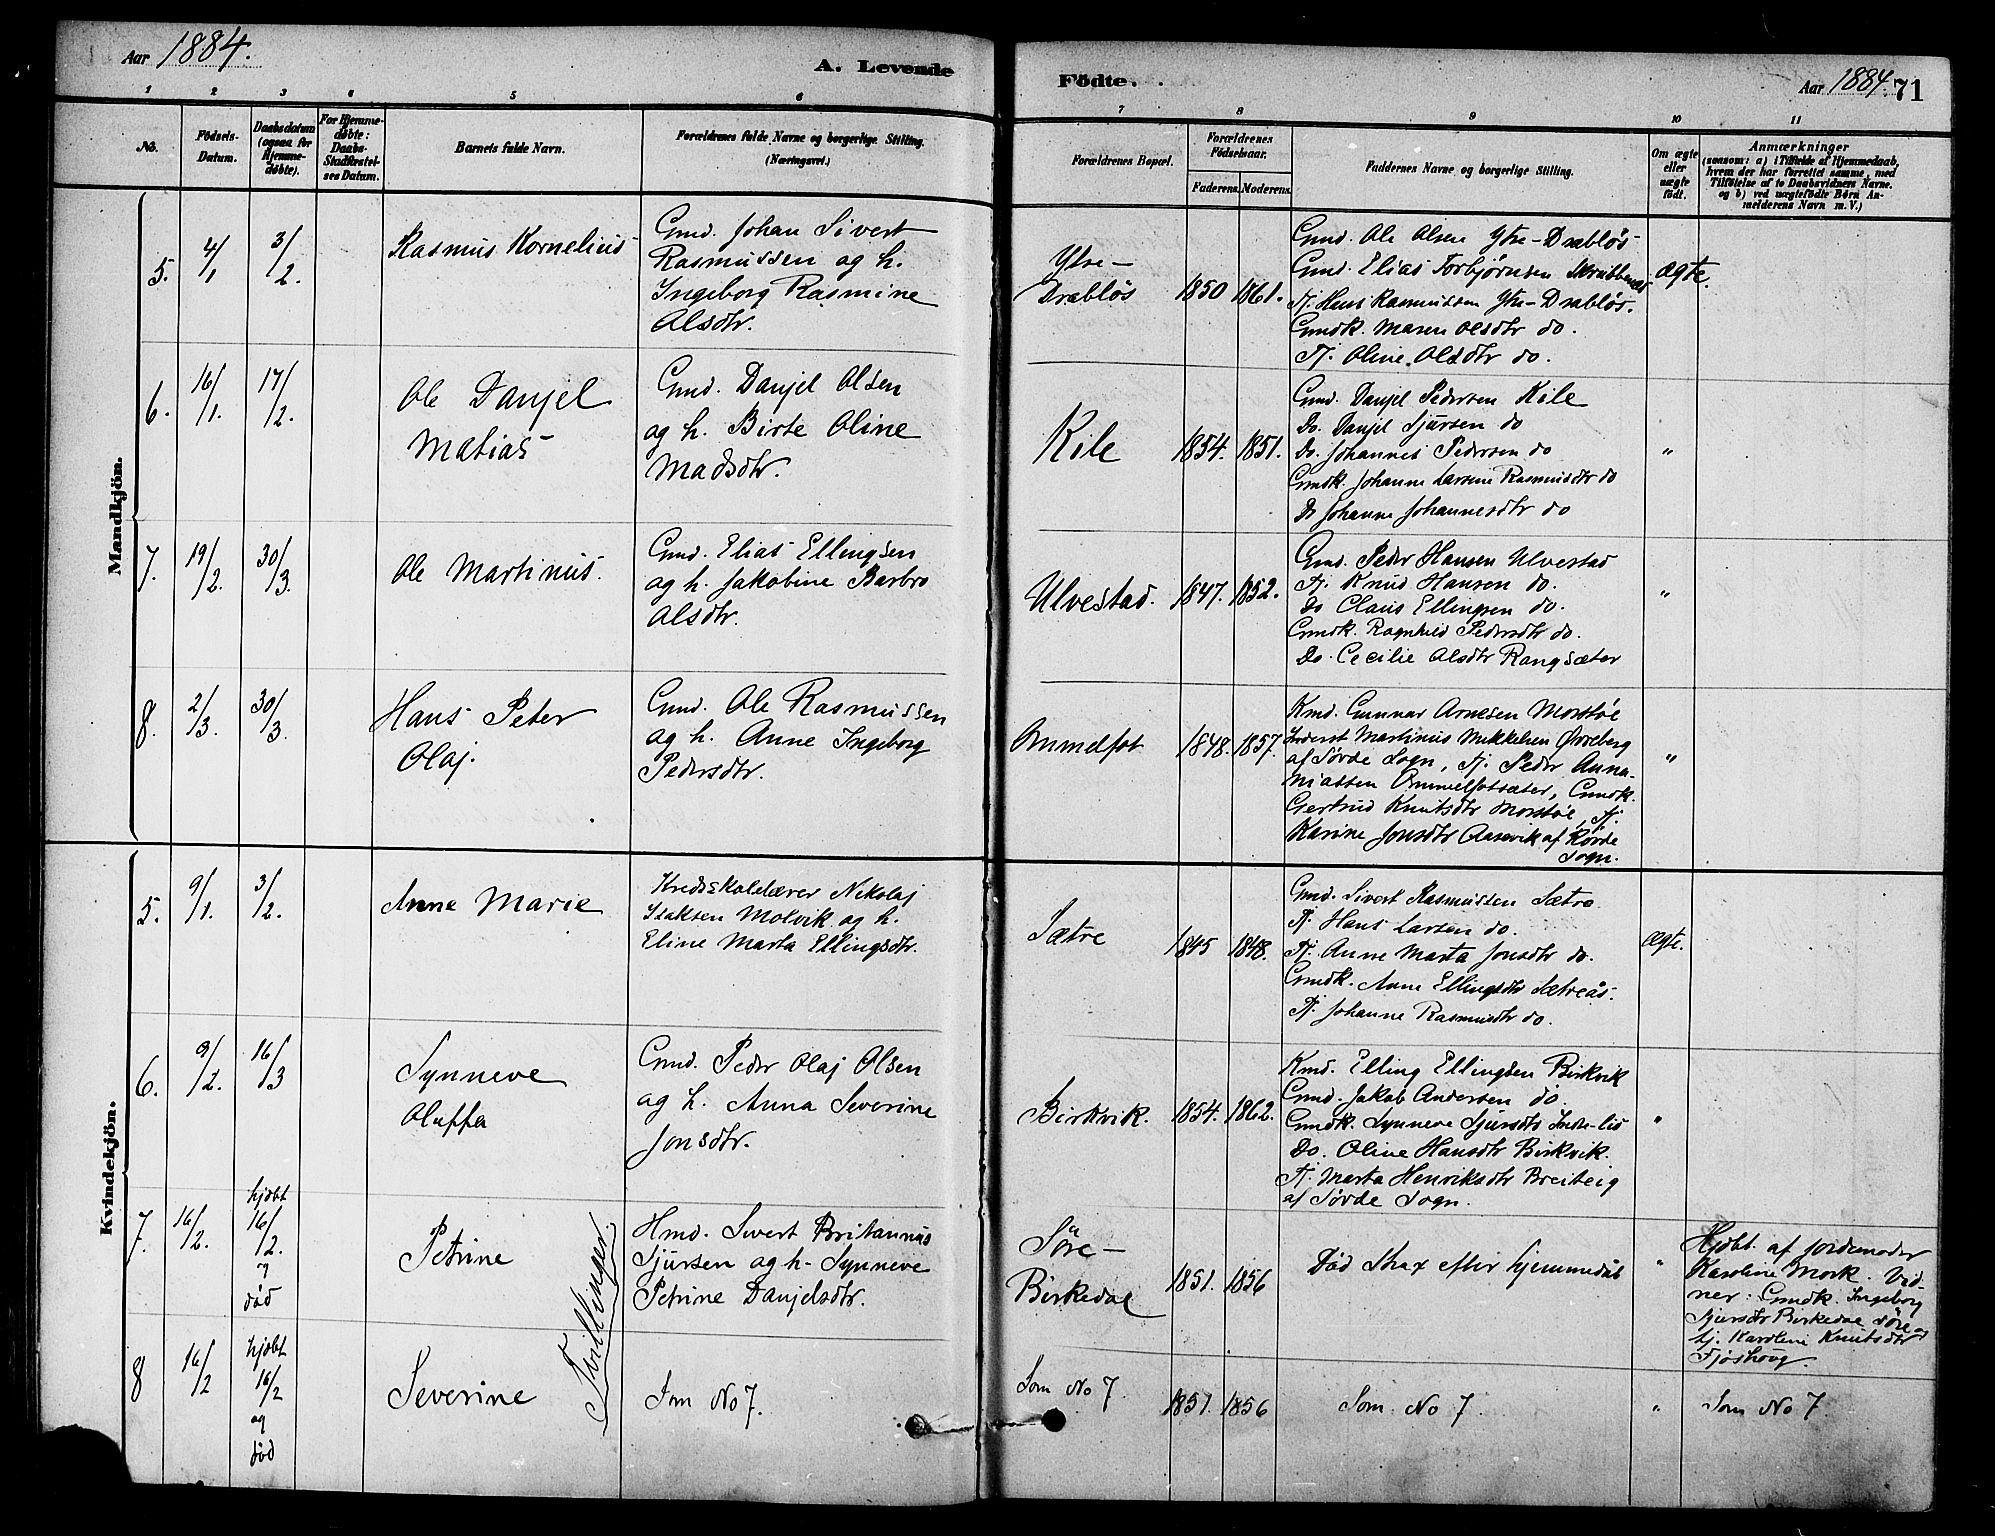 Aar 1884.
A. Levende
1 2 3 4 5 6
No.
Födsels-Datum.
Daabsdatum (ogsaa for Hjemmedøbte).
For Hjemmedøbte: Daabs-Stadfæstelses Datum.
Barnets fulde Navn.
Forældrenes fulde Navne og borgerlige Stilling. (Næringsvei.)
Födte.
Aar 1884. 71
7 8 9 10 11
Forældrenes Bopæl.
Forældrenes Födselsaar.
Faderens. Moderens.
Faddernes Navne og borgerlige Stilling.
Om ægte eller uægte født.
Anmærkninger
(saasom: a) i Tilfælde af Hjemmedaab, hvem der har forrettet samme, med Tilföielse af to Daabsvidners Navne. og b) ved uægtefødte Börn Anmelderens Navn m. V.)
Mandkjön.
5. 4/1 3/2.
Rasmus Kornelius
Gmd. Johan Sivert
Rasmussen og h.
Ingeborg Rasmine
Olsdtr.
Ytre-
Drabløs
1850 1861.
Gmd. Ole Olsen Ytre-Drabløs
Gmd. Elias Torbjørnsen
Tj. Hans Rasmussen Ytre-Drabløs.
Gmdk. Maren Olsdtr do.
Tj. Oline Olsdtr do.
ægte.
6. 16/1. 17/2.
Ole Danjel
Matias
Gmd. Danjel Olsen
og h. Birte Oline
Madsdtr.
Kile
1854. 1851.
Gmd. Danjel Pedersen Kile
Do. Danjel Sjursen do
Do. Johannes Pedersen do
Gmdk. Johanne Larsine Rasmusdtr do
Do Johanne Johannesdtr do
"
7. 19/2. 30/3.
Ole Martinus.
Gmd. Elias Ellingsen
og h. Jakobine Barbro
Olsdtr.
Ulvestad.
1847. 1852.
Gmd. Peder Hansen Ulvestad
Tj. Knud Hansen do.
Do Claus Ellingsen do.
Gmdk. Ragnhild Pedersdtr do.
Do. Cecilie Olsdtr Rangsæter
"
8. 2/3. 30/3.
Hans Peter
Olaj.
Gmd. Ole Rasmussen
og h. Anne Ingeborg
Pedersdtr.
1848. 1857.
Kmd. Gunnar Arnesen Morstøl
Martinus Mikkelsen
af Sørde Sogn, Tj. Peder Anna-
niassen Ommelfotsæter, Gmdk.
Gertrud Knutsdtr Morstøl, Tj.
Karine Jonsdtr Aasevik af Rørde
Sogn.
"
Kvindekjön.
5. 9/1. 3/2.
Anne Marie
Kredsskolelærer Nikolaj
Isaksen Molvik og h.
Eline Marta Ellingsdtr.
Sætre
1845 1848.
Gmd. Sivert Rasmussen Sætre
Tj. Hans Larsen do.
Tj. Anne Marta Jonsdtr do.
Gmdk. Anne Ellingsdtr Sætreås.
Tj. Johanne Rasmusdtr do.
Ægte.
6. 9/2. 16/3
Synneve
Oluffa
Gmd. Peder Olaj Olsen
og h. Anna Severine
Jonsdtr.
Birkvik.
1854. 1862.
Kmd. Elling Ellingsen Birkvik
Gmd. Jakob Andersen do.
Gmdk. Synneve Sjursdtr Indre-lid
Do. Oline Hansdtr Birkvik.
Tj. Marta Henriksdtr Breiteig
af Sørde Sogn.
"
7. 16/2.
hjdbt
16/2.
og
død
Petrine
Hmd. Sivert Britannus
Sjursen og h. Synneve
Petrine Danjelsdtr.
Tvillinger
Søre-
Birkedal
1851. 1856
Død strax efter hjemmedåb
"
Hjdbt. af Jordemoder
Karoline Mork. Vid-
ner: Gmdk. Ingeborg
Sjursdtr Birkedal søre-
tj. Karoline Knutsdtr
Fjøshoug.
8 16/2
hjdbt
16/2
og
død
Severine
Som No 7.
Som No 7.
1851. 1856
Som No 7
"
Som No 7.